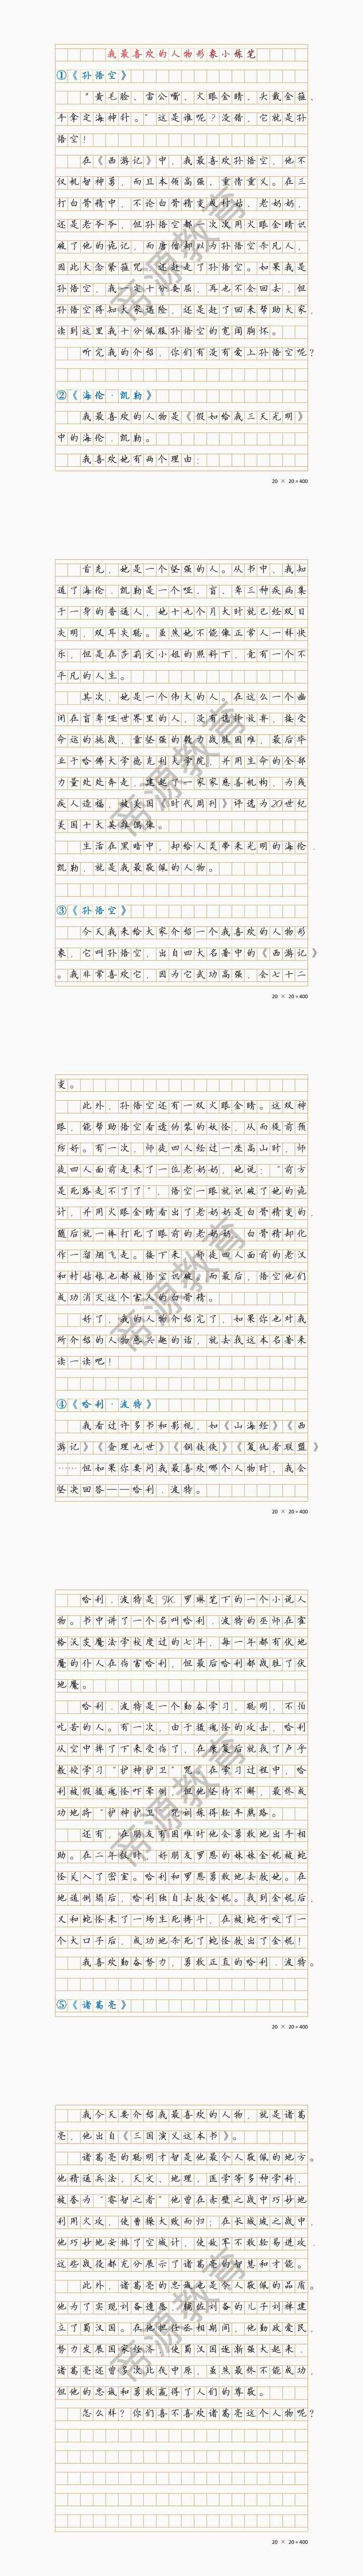 我最喜欢的人物形象小练笔
①《孙悟空》
“黄毛脸、雷公嘴、火眼金睛，头戴金箍，
手拿定海神针。”这是谁呢？没错，它就是孙
悟空！
在《西游记》中，我最喜欢孙悟空，他不
仅机智神勇，而且本领高强，重情重义。在三
打白骨精中，不论白骨精变成村姑、老奶奶，
还是老爷爷，但孙悟空都一次次用火眼金睛识
破了他的诡记，而唐僧却以为孙悟空杀凡人，
因此大念紧箍咒，还赶走了孙悟空。如果我是
孙悟空，我一定十分委屈，再也不会回去，但
孙悟空得知大家遇险，还是赶了回来帮助大家，
读到这里我十分佩服孙悟空的宽阔胸怀。
听完我的介绍，你们有没有爱上孙悟空呢？
②《海伦·凯勒》
我最喜欢的人物是《假如给我三天光明》
中的海伦·凯勒。
我喜欢她有两个理由：
20 × 20＝400
首先，她是一个坚强的人。从书中，我知
道了海伦·凯勒是一个哑、盲、聋三种疾病集
于一身的普通人，她十九个月大时就已经双目
失明，双耳失聪。虽然她不能像正常人一样快
乐，但是在莎莉文小姐的照料下，竟有一个不
平凡的人生。
其次，她是一个伟大的人。在这么一个幽
闭在盲聋哑世界里的人，没有选择放弃，接受
命运的挑战，靠坚强的毅力战胜困难，最后毕
业于哈佛大学德克利夫学院，并用生命的全部
力量处处奔走，建起了一家家慈善机构，为残
疾人造福，被美国《时代周刊》评选为20世纪
美国十大英雄偶像。
生活在黑暗中，却给人类带来光明的海伦·
凯勒，就是我最敬佩的人物。
③《孙悟空》
今天我来给大家介绍一个我喜欢的人物形
象，它叫孙悟空，出自四大名著中的《西游记》
。我非常喜欢它，因为它武功高强，会七十二
20 × 20＝400
变。
此外，孙悟空还有一双火眼金睛。这双神
眼，能帮助悟空看透伪装的妖怪，从而提前预
防好。有一次，师徒四人经过一座高山时，师
徒四人面前走来了一位老奶奶，她说：“前方
是死路走不了了”，悟空一眼就识破了她的诡
计，并用火眼金睛看出了老奶奶是白骨精变的，
随后就一棒打死了眼前的老奶奶，白骨精却化
作一溜烟飞走。接下来，师徒四人面前的老汉
和村姑娘也都被悟空识破，而最后，悟空他们
成功消灭这个害人的白骨精。
好了，我的人物介绍完了，如果你也对我
所介绍的人物感兴趣的话，就去我这本名著来
读一读吧！
④《哈利·波特》
我看过许多书和影视，如《山海经》《西
游记》《查理九世》《钢铁侠》《复仇者联盟》
……但如果你要问我最喜欢哪个人物时，我会
坚决回答——哈利·波特。
20 × 20＝400
哈利·波特是JK.罗琳笔下的一个小说人
物。书中讲了一个名叫哈利·波特的巫师在霍
格沃茨魔法学校度过的七年，每一年都有伏地
魔的仆人在伤害哈利，但最后哈利都战胜了伏
地魔。
哈利·波特是一个勤奋学习，聪明，不怕
吃苦的人。有一次，由于摄魂怪的攻击，哈利
从空中摔了下来受伤了，在康复后就找了卢平
教授学习“护神护卫”咒。在学习过程中，哈
利被假摄魂怪吓晕倒，但他坚持不懈，最终成
功地将“护神护卫”咒训练得轻车熟路。
还有，在朋友有困难时他会勇敢地出手相
助。在二年级时，好朋友罗恩的妹妹金妮被蛇
怪关入了密室。哈利和罗恩勇敢地去救她。在
地道倒塌后，哈利独自去救金妮。找到金妮后，
又和蛇怪来了一场生死搏斗，在被蛇牙咬了一
个大口子后，成功地杀死了蛇怪救出了金妮！
我喜欢勤奋努力，勇敢正直的哈利·波特。
⑤《诸葛亮》
20 × 20＝400
我今天要介绍我最喜欢的人物，就是诸葛
亮，他出自《三国演义这本书》。
诸葛亮的聪明才智是他最令人敬佩的地方。
他精通兵法、天文、地理、医学等多种学科，
被誉为“睿智之者”他曾在赤壁之战中巧妙地
利用火攻，使曹操大败而归；在长城坡之战中，
他巧妙地安排了空城计，使敌军不敢轻易进攻，
这些战役都充分展示了诸葛亮的智慧和才能。
此外，诸葛亮的忠诚也是令人敬佩的品质。
他为了实现刘备遗愿，辅佐刘备的儿子刘禅建
立了蜀汉国。在他担任丞相期间，他勤政爱民，
努力发展国家经济，使蜀汉国逐渐强大起来，
诸葛亮还曾多次北伐中原，虽然最终不能成功，
但他的忠诚和勇敢赢得了人们的尊敬。
怎么样？你们喜不喜欢诸葛亮这个人物呢？
20 × 20＝400
帝源教育